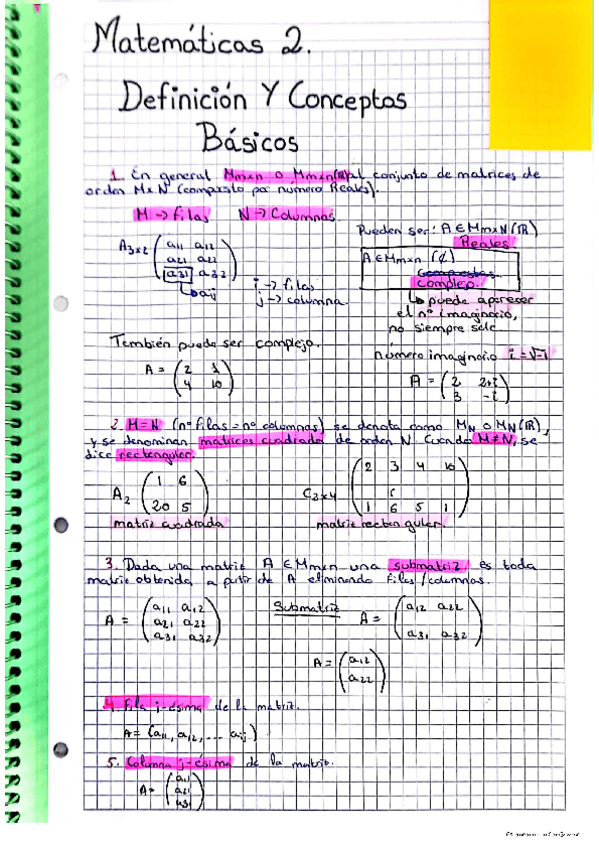 Matemáticas 2.
Definición Y Conceptos
Básicos
1. En general Mmxn o Mmxn(ℝ) al conjunto de matrices de
orden MxN (compuesto por numero Reales).
M → filas N → Columnas
Pueden ser: A ∈ MmxN (ℝ)
Reales.
A3x2 ( a11 a12
a21 a22
a31 a32 )
↳ aij
i → filas
j → columna.
A ∈ Mmxn (ℂ)
complejo.
↳ puede aparecer
el nº imaginario,
no siempre sale.
También puede ser complejo.
número imaginario i = √-1
A = ( 2 1
4 10 )
A = ( 2 2+i
3 -i )
2. M=N (nº filas = nº columnas) se denota como MN o MN(ℝ),
y se denominan matrices cuadrada de orden N. Cuando M≠N, se
dice rectangular.
A2 ( 1 6
20 5 )
matriz cuadrada
C3x4 ( 2 3 4 10
1 6 5 1 )
matriz rectangular.
3. Dada una matriz A ∈ Mmxn una submatriz es toda
matriz obtenida a partir de A eliminando filas/columnas.
A = ( a11 a12
a21 a22
a31 a32 )
Submatriz
A = ( a12 a22
a31 a32 )
A = ( a12
a22 )
4. Fila j-ésima de la matriz.
A = (a11, a12, ... aij)
5. Columna j-ésima de la matriz.
A = ( a11
a21
a31 )